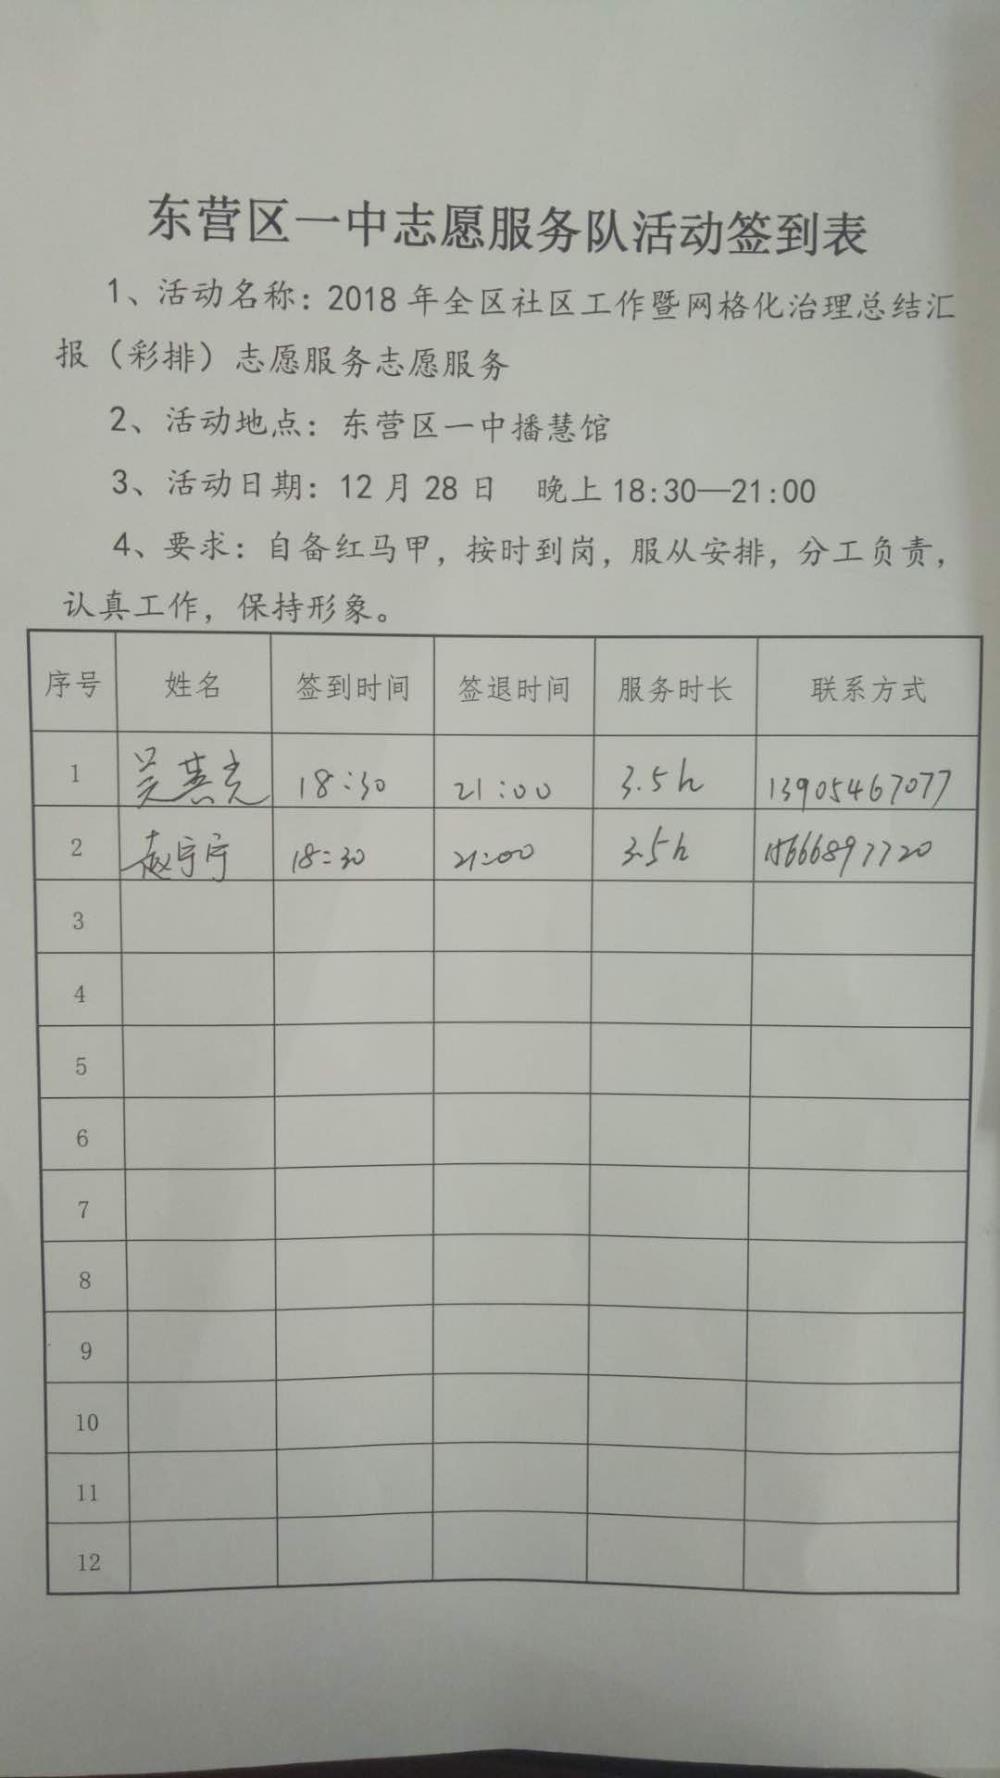 东营区一中志愿服务队活动签到表
1、活动名称：2018年全区社区工作暨网格化治理总结汇
报（彩排）志愿服务志愿服务
2、活动地点：东营区一中播慧馆
3、活动日期：12月28日 晚上18:30—21:00
4、要求：自备红马甲，按时到岗，服从安排，分工负责，
认真工作，保持形象。
序号 姓名 签到时间 签退时间 服务时长 联系方式
1 吴燕光 18:30 21:00 3.5h 13905467077
2 赵宁宁 18:30 21:00 3.5h 15666897720
3
4
5
6
7
8
9
10
11
12